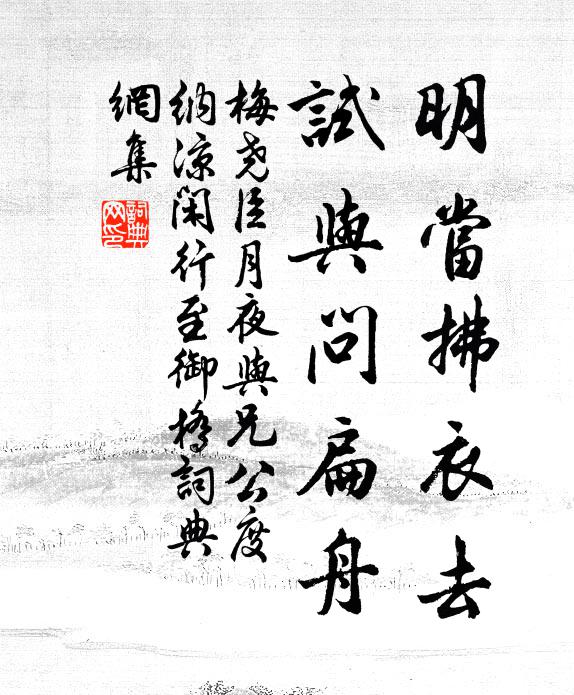 明當拂衣去
試與問扁舟
梅尧臣月夜與兄公度
納涼閑行至御橋詞典
網集
詞典
网印